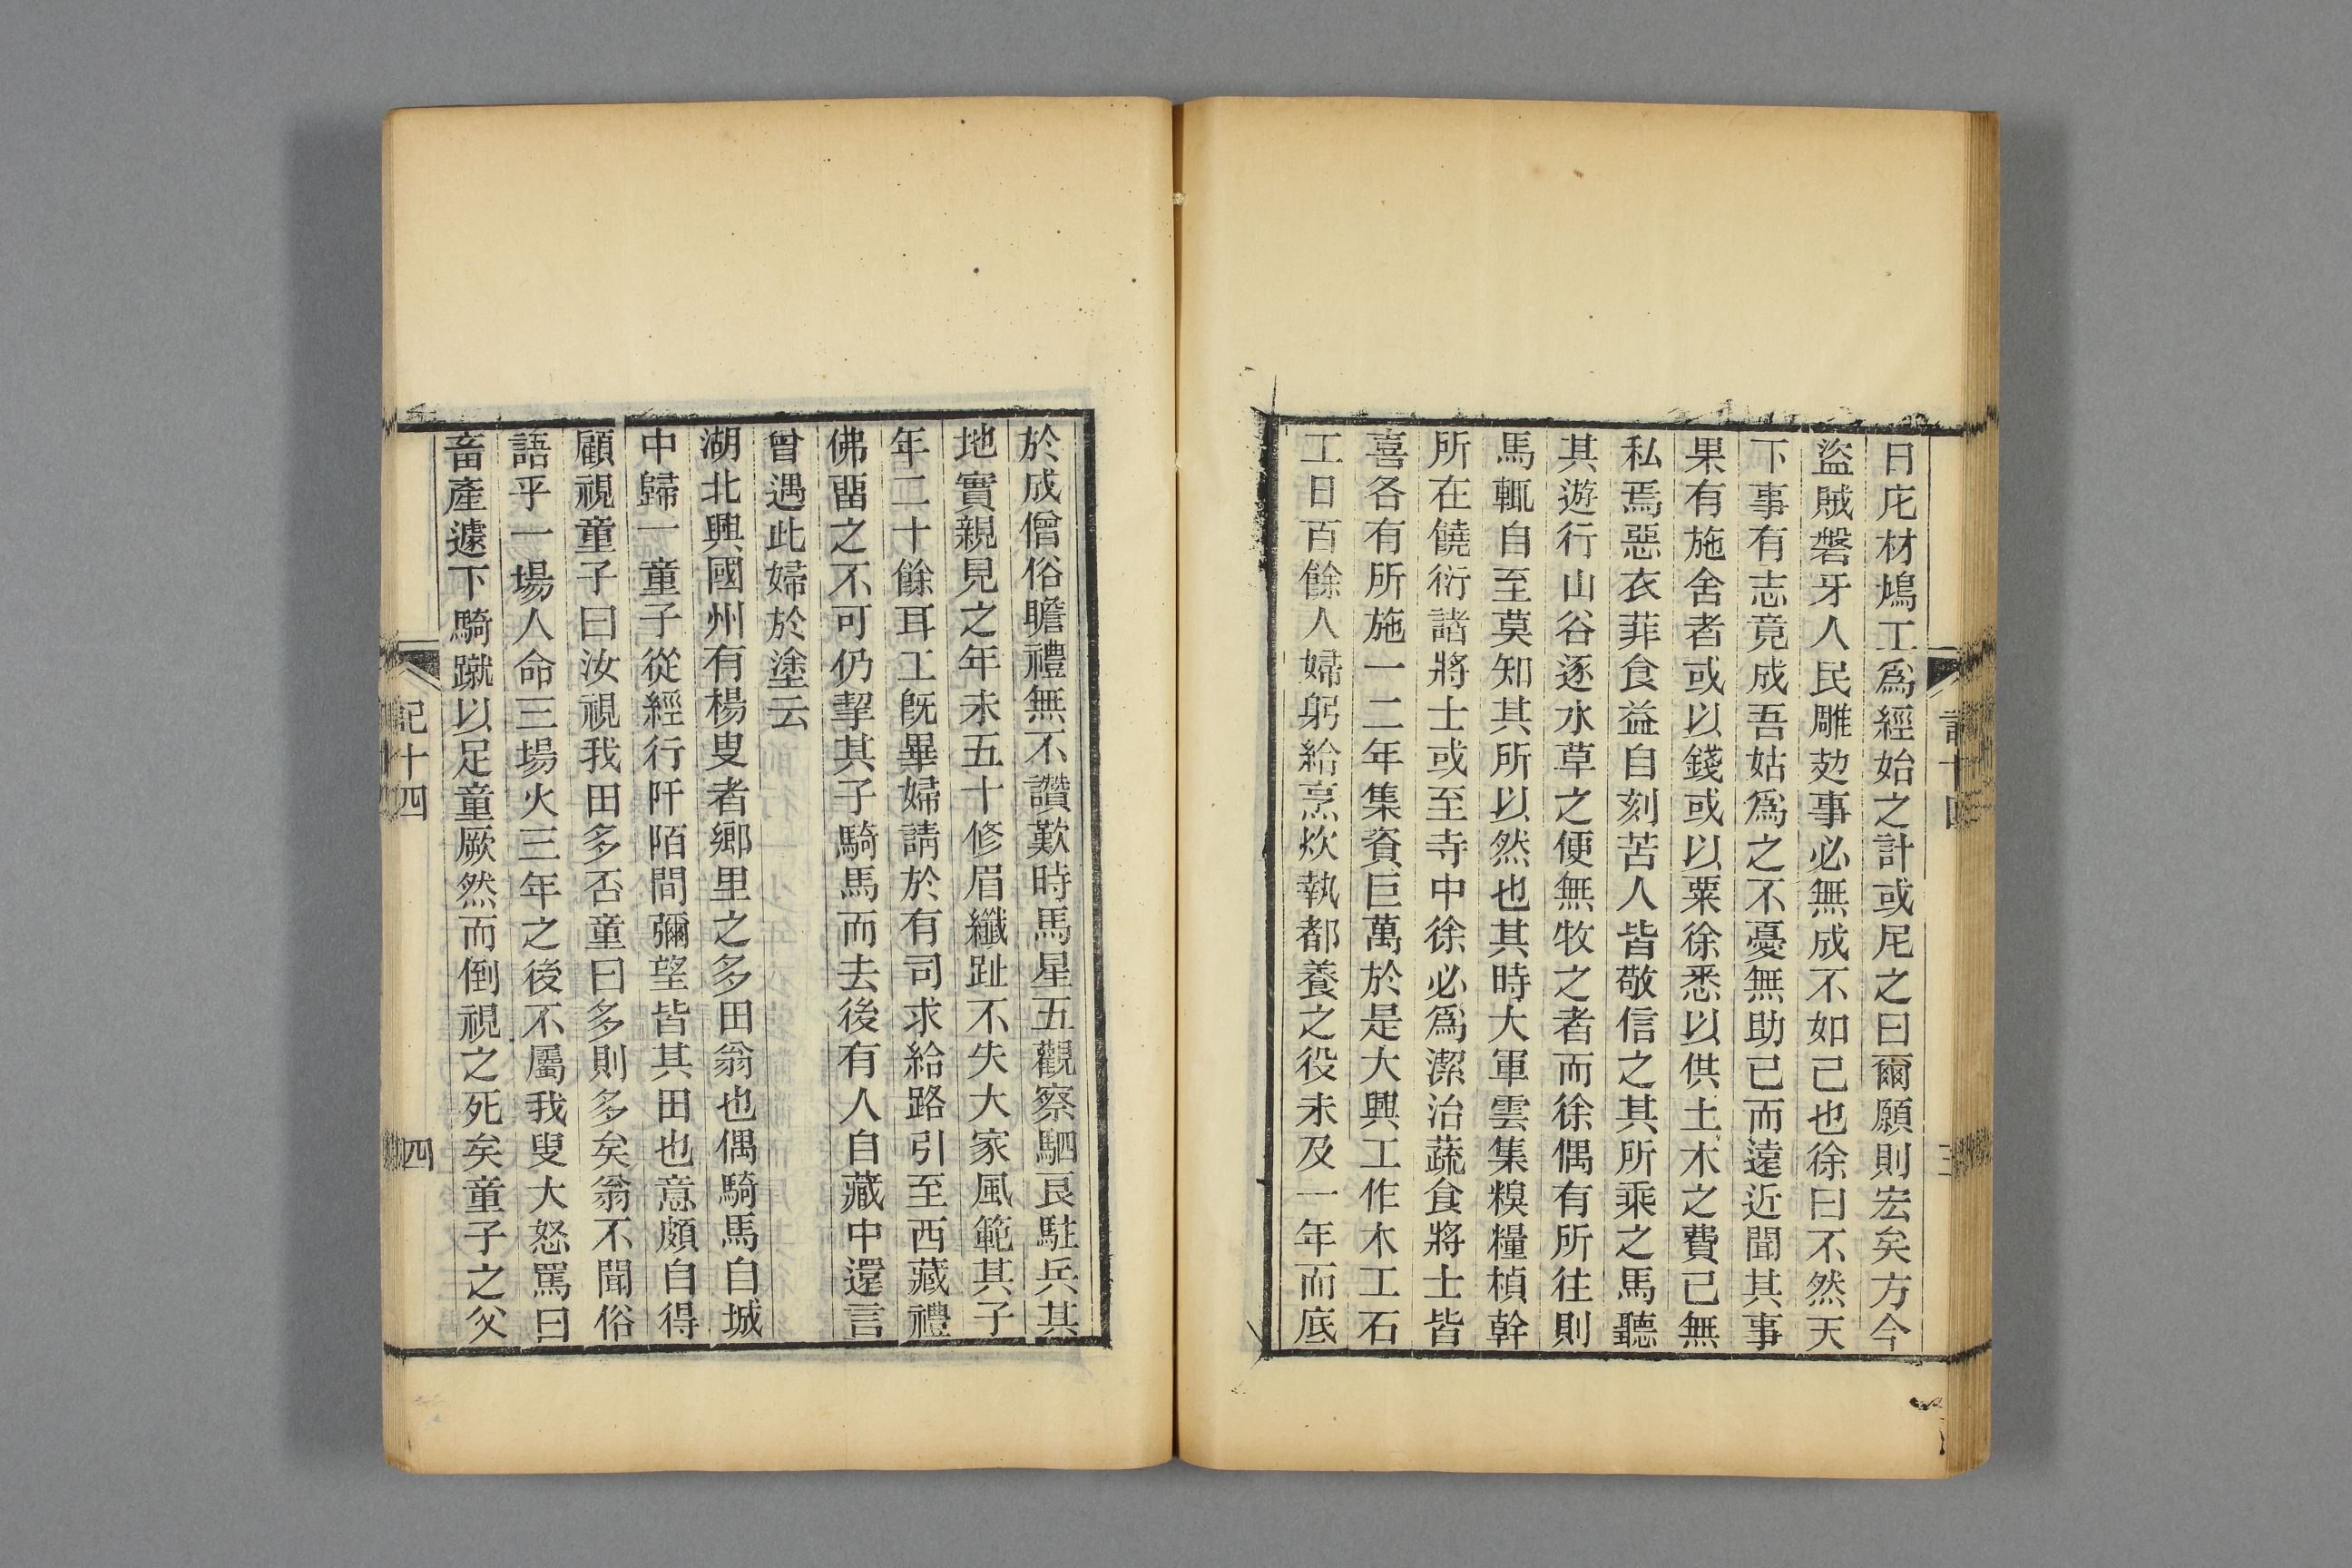 日庀材鳩工爲經始之計或尼之曰爾願則宏矣方今
盜賊磐牙人民雕攰事必無成不如已也徐曰不然天
下事有志竟成吾姑爲之不憂無助已而遠近聞其事
果有施舍者或以錢或以粟徐悉以供土木之費已無
私焉惡衣菲食益自刻苦人皆敬信之其所乘之馬聽
其遊行山谷逐水草之便無牧之者而徐偶有所往則
馬輒自至莫知其所以然也其時大軍雲集糗糧楨幹
所在饒衍諸將士或至寺中徐必爲潔治蔬食將士皆
喜各有所施一二年集資巨萬於是大興工作木工石
工日百餘人婦躬給烹炊執都養之役未及一年而底
於成僧俗瞻禮無不讚歎時馬星五觀察駟良駐兵其
地實親見之年未五十修眉纖趾不失大家風範其子
年二十餘耳工旣畢婦請於有司求給路引至西藏禮
佛畱之不可仍挈其子騎馬而去後有人自藏中還言
曾遇此婦於塗云
湖北興國州有楊叟者鄉里之多田翁也偶騎馬自城
中歸一童子從經行阡陌間彌望皆其田也意頗自得
顧視童子曰汝視我田多否童曰多則多矣翁不聞俗
語乎一場人命三場火三年之後不屬我叟大怒罵曰
畜產遽下騎蹴以足童厥然而倒視之死矣童子之父
記十四
四